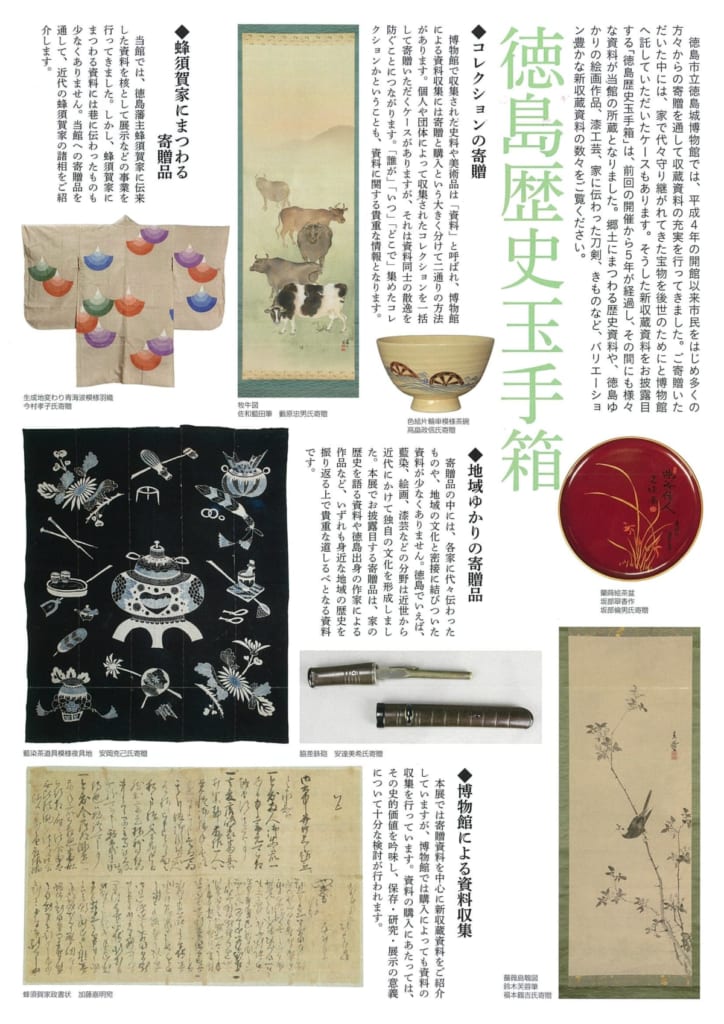 徳島歴史玉手箱
徳島市立徳島城博物館では、平成４年の開館以来市民をはじめ多くの
方々からの寄贈を通して収蔵資料の充実を行ってきました。ご寄贈いた
だいた中には、家で代々守り継がれてきた宝物を後世のためにと博物館
へ託していただいたケースもあります。そうした新収蔵資料をお披露目
する「徳島歴史玉手箱」は、前回の開催から５年が経過し、その間にも様々
な資料が当館の所蔵となりました。郷土にまつわる歴史資料や、徳島ゆ
かりの絵画作品、漆工芸、家に伝わった刀剣、きものなど、バリエーショ
ン豊かな新収蔵資料の数々をご覧ください。
◆コレクションの寄贈
博物館で収集された史料や美術品は「資料」と呼ばれ、博物館
による資料収集には寄贈と購入という大きく分けて二通りの方法
があります。個人や団体によって収集されたコレクションを一括
して寄贈いただくケースがありますが、それは資料同士の散逸を
防ぐことにつながります。「誰が」「いつ」「どこで」集めたコレ
クションかということも、資料に関する貴重な情報となります。
◆蜂須賀家にまつわる
寄贈品
当館では、徳島藩主蜂須賀家に伝来
した資料を核として展示などの事業を
行ってきました。しかし、蜂須賀家に
まつわる資料には巷に伝わったものも
少なくありません。当館への寄贈品を
通して、近代の蜂須賀家の諸相をご紹
介します。
生成地変わり青海波模様羽織
今村孝子氏寄贈
牧牛図
佐和藍田筆　藪原忠男氏寄贈
色絵片輪車模様茶碗
高畠政信氏寄贈
蘭蒔絵茶盆
坂部翠香作
坂部倫男氏寄贈
◆地域ゆかりの寄贈品
寄贈品の中には、各家に代々伝わった
ものや、地域の文化と密接に結びついた
資料が少なくありません。徳島でいえば、
藍染、絵画、漆芸などの分野は近世から
近代にかけて独自の文化を形成しまし
た。本展でお披露目する寄贈品は、家の
歴史を語る資料や徳島出身の作家による
作品など、いずれも身近な地域の歴史を
振り返る上で貴重な道しるべとなる資料
です。
藍染茶道具模様夜具地　安岡克己氏寄贈
脇差鉄砲　安達美希氏寄贈
◆博物館による資料収集
本展では寄贈資料を中心に新収蔵資料をご紹介
していますが、博物館では購入によっても資料の
収集を行っています。資料の購入にあたっては、
その史的価値を吟味し、保存・研究・展示の意義
について十分な検討が行われます。
蜂須賀家政書状　加藤嘉明宛
薔薇島鵯図
鈴木芙蓉筆
福本鶴吉氏寄贈